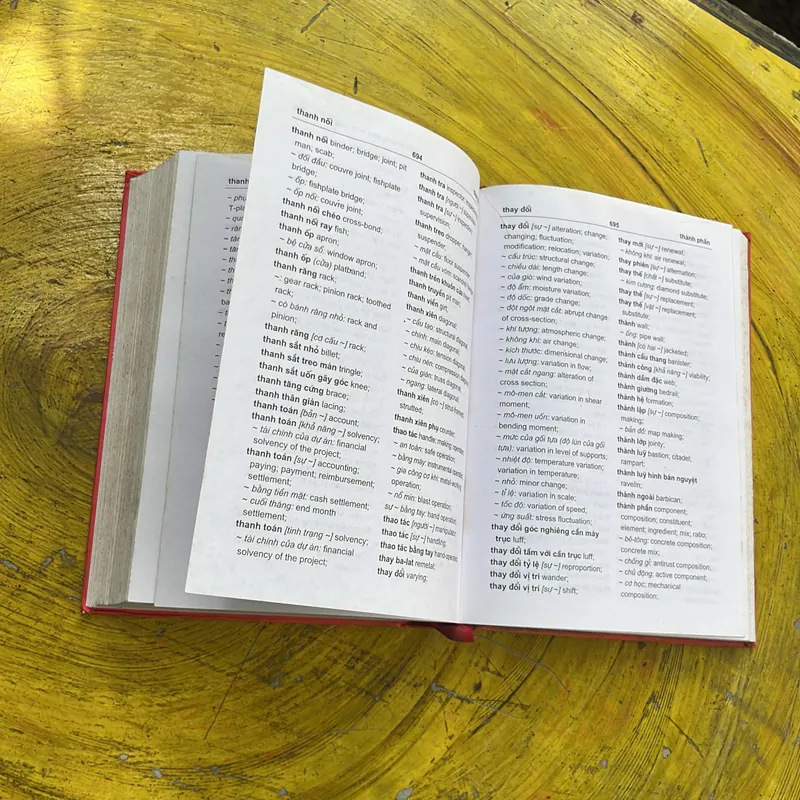 thanh nối
694
thanh nối binder; bridge; joint; pit
man; scab;
~ đối đầu: couvre joint; fishplate
bridge;
~ ốp: fishplate bridge;
~ ốp nối: couvre joint;
thanh nối chéo cross-bond;
thanh nối ray fish;
thanh ốp apron;
~ bệ cửa sổ: window apron;
thanh ốp (cửa) platband;
thanh răng rack;
~: gear rack; pinion rack; toothed
rack;
~ có bánh răng nhỏ: rack and
pinion;
thanh răng [cơ cấu ~] rack;
thanh sắt nhỏ billet;
thanh sắt treo màn tringle;
thanh sắt uốn gãy góc knee;
thanh tăng cứng brace;
thanh thân giàn lacing;
thanh toán [bản ~] account;
thanh toán [khả năng ~] solvency;
~ tài chính của dự án: financial
solvency of the project;
thanh toán [sự ~] accounting;
paying; payment; reimbursement;
settlement;
~ bằng tiền mặt: cash settlement;
~ cuối tháng: end month
settlement;
thanh toán [tình trạng ~] solvency;
~ tài chính của dự án: financial
solvency of the project;
thanh tra inspector;
thanh tra [người ~]
thanh tra [sự ~]
supervision;
thanh treo
suspender;
~ mặt cầu: floor suspender
thanh truyền pit man;
thanh viền girt;
thanh xiên diagonal;
~ cấu tạo: structural diagonal
~ chính: main diagonal;
~ chịu kéo: tension diagonal;
~ chịu nén: compression diagonal
~ của giàn: truss diagonal;
~ ngang: lateral diagonal;
thanh xiên [có ~] strut-framed;
strutted;
thanh xiên phụ counter;
thao tác handle; making; operation;
~ an toàn: safe operation;
~ bằng máy: instrumental operation
~ gia công cơ khí: metal-working
operation;
~ nổ mìn: blast operation;
sự ~ bằng tay: hand operation;
thao tác [người ~] manipulator
thao tác [sự ~] handling;
thao tác bằng tay hand-operated
thay ba-lat remetal;
thay đổi varying;
thay đổi
695
thành phần
thay đổi [sự ~] alteration; change;
changing; fluctuation;
modification; relocation; variation;
~ cấu trúc: structural change;
~ chiều dài: length change;
~ của gió: wind variation;
~ độ ẩm: moisture variation;
~ độ dốc: grade change;
~ đột ngột mặt cắt: abrupt change
of cross-section;
~ khí tượng: atmospheric change;
~ không khí: air change;
~ kích thước: dimensional change;
~ lưu lượng: variation in flow;
~ mặt cắt ngang: alteration of
cross section;
~ mô-men cắt: variation in shear
moment;
~ mô-men uốn: variation in
bending moment;
~ mức của gối tựa (độ lún của gối
tựa): variation in level of supports;
~ nhiệt độ: temperature variation;
variation in temperature;
~ nhỏ: minor change;
~ tỉ lệ: variation in scale;
~ tốc độ: variation of speed;
~ ứng suất: stress fluctuation;
thay đổi góc nghiêng cần máy
trục luff;
thay đổi tầm với cần trục luff;
thay đổi tỷ lệ [sự ~] reproportion;
thay đổi vị trí wander;
thay đổi vị trí [sự ~] shift;
thay mới [sự ~] renewal;
~ không khí: air renewal;
thay phiên [sự ~] alternation;
thay thế [chất ~] substitute;
~ kim cương: diamond substitute;
thay thế [sự ~] replacement;
thay thế [vật ~] replacement;
substitute;
thành wall;
~ ống: pipe wall;
thành [có hai ~] jacketed;
thành cầu thang banister;
thành công [khả năng ~] viability;
thành dầm đặc web;
thành giường bedrail;
thành hệ formation;
thành lập [sự ~] composition;
making;
~ bản đồ: map making;
thành lớp jointy;
thành luỹ bastion; citadel;
rampart;
thành luỹ hình bán nguyệt
ravelin;
thành ngoài barbican;
thành phần component;
composition; constituent;
element; ingredient; mix; ratio;
~ bê-tông: concrete composition;
concrete mix;
~ chống gỉ: antirust composition;
~ chủ động: active component;
~ cơ học: mechanical
composition;